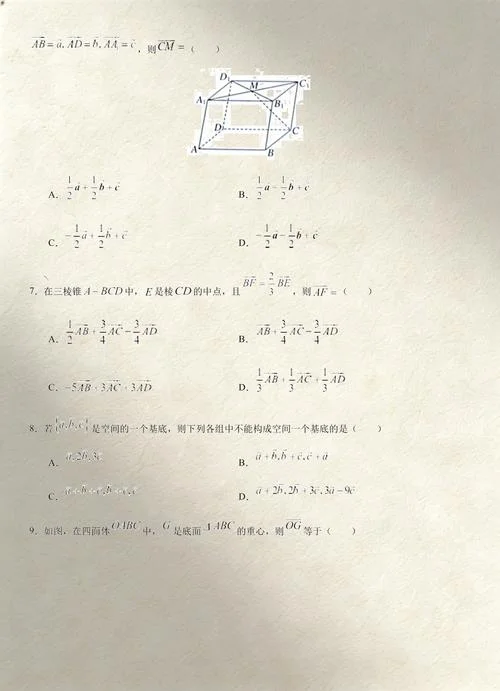 $\overrightarrow{AB}=\vec{a},\overrightarrow{AD}=\vec{b},\overrightarrow{AA_1}=\vec{c}$,则$\overrightarrow{CM}=$( )
D₁ M C₁
A₁ B₁
D C
A B
A. $\frac{1}{2}\vec{a}+\frac{1}{2}\vec{b}+\vec{c}$ B. $\frac{1}{2}\vec{a}-\frac{1}{2}\vec{b}+\vec{c}$
C. $-\frac{1}{2}\vec{a}+\frac{1}{2}\vec{b}+\vec{c}$ D. $-\frac{1}{2}\vec{a}-\frac{1}{2}\vec{b}+\vec{c}$
7. 在三棱锥 A-BCD 中,E 是棱 CD 的中点,且 $\overrightarrow{BF}=\frac{2}{3}\overrightarrow{BE}$,则 $\overrightarrow{AF}=$( )
A. $\frac{1}{2}\overrightarrow{AB}+\frac{3}{4}\overrightarrow{AC}-\frac{3}{4}\overrightarrow{AD}$ B. $\overrightarrow{AB}+\frac{3}{4}\overrightarrow{AC}-\frac{3}{4}\overrightarrow{AD}$
C. $-5\overrightarrow{AB}+3\overrightarrow{AC}+3\overrightarrow{AD}$ D. $\frac{1}{3}\overrightarrow{AB}+\frac{1}{3}\overrightarrow{AC}+\frac{1}{3}\overrightarrow{AD}$
8. 若$\{\vec{a},\vec{b},\vec{c}\}$是空间的一个基底,则下列各组中不能构成空间一个基底的是( )
A. $\vec{a},2\vec{b},3\vec{c}$ B. $\vec{a}+\vec{b},\vec{b}+\vec{c},\vec{c}+\vec{a}$
C. $\vec{a}+\vec{b}+\vec{c},\vec{b}+\vec{c},\vec{c}$ D. $\vec{a}+2\vec{b},2\vec{b}+3\vec{c},3\vec{a}-9\vec{c}$
9. 如图,在四面体 OABC 中,G 是底面 △ABC 的重心,则 $\overrightarrow{OG}$ 等于( )